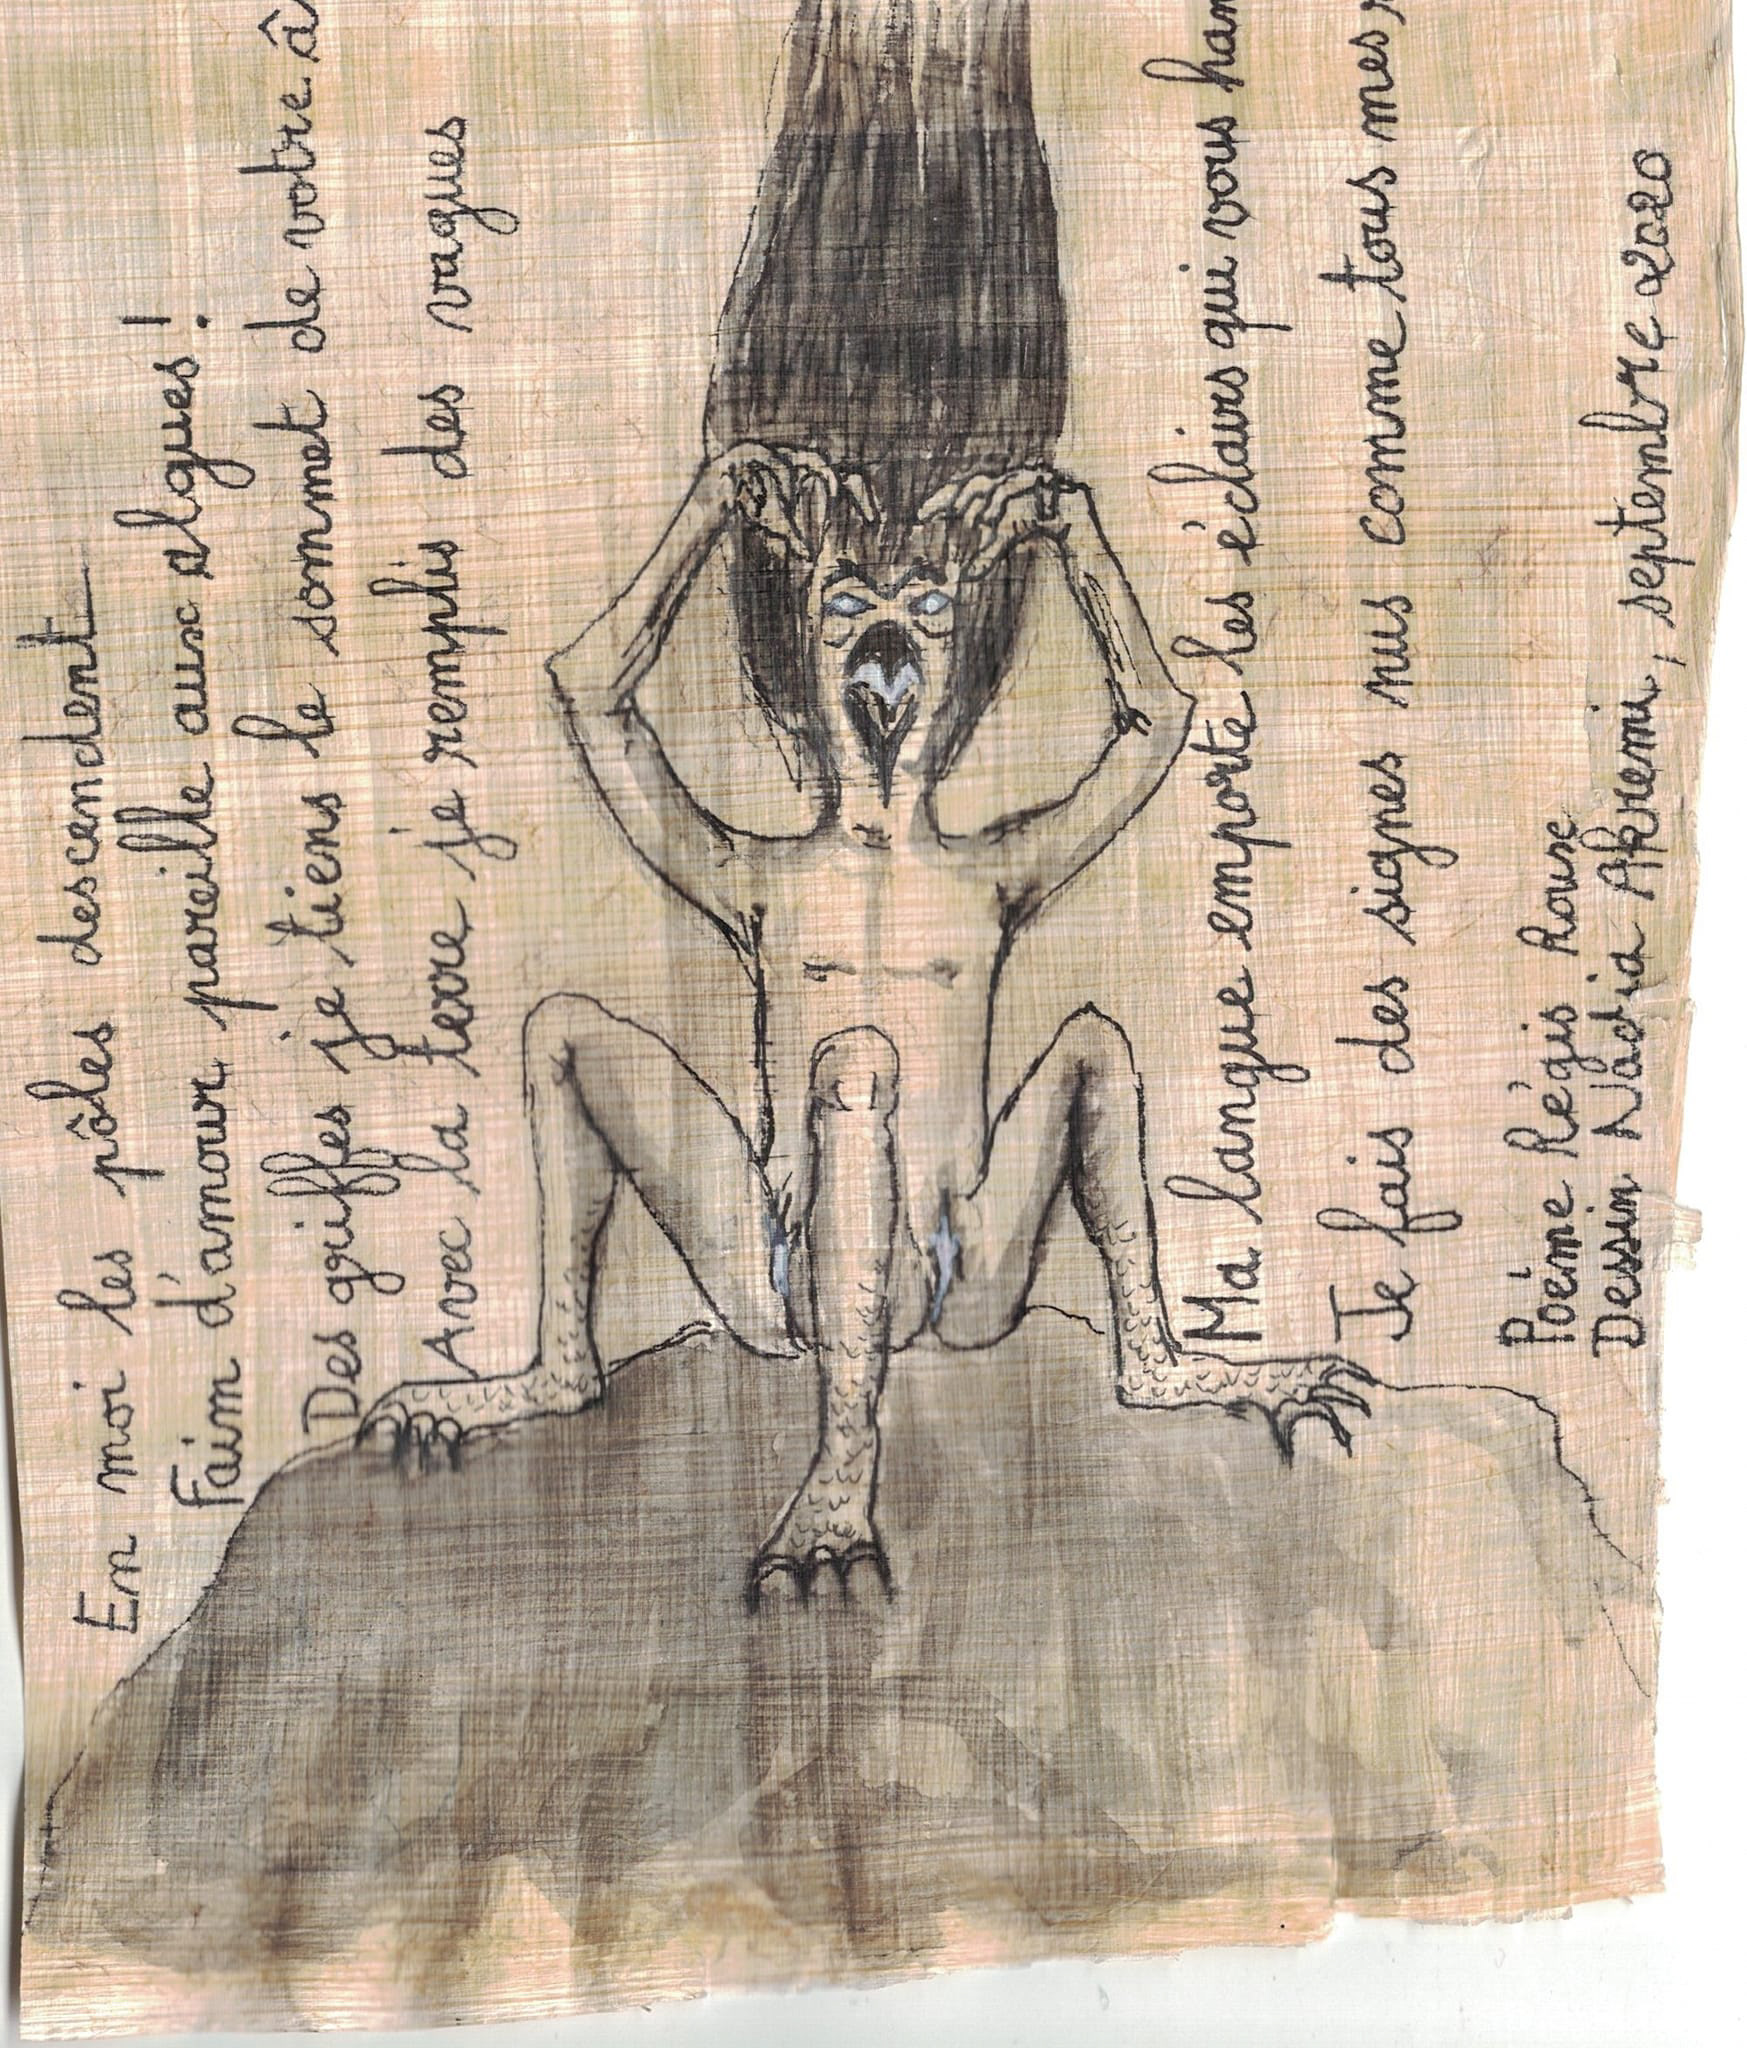 En moi les pôles descendent
Faim d'amour pareille aux algues !
Des griffes je tiens le sommet de votre â
Avec la terre je remplis des vagues
Ma langue emporte les éclairs qui vous han
Je fais des signes nus comme tous mes
Poème Régis Roux
Dessin Nadia Akremi, septembre 2020